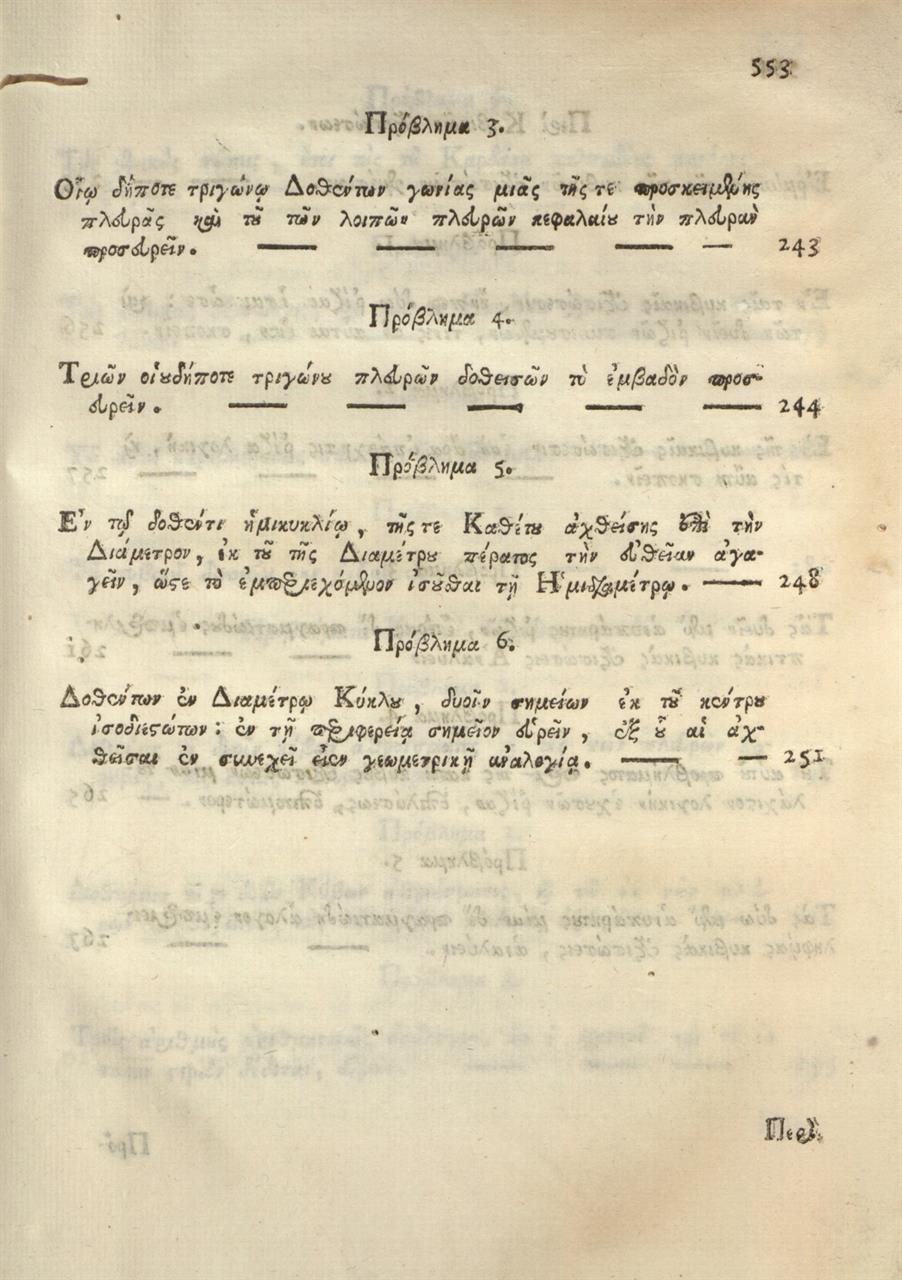 553
Πρόβλημα 3.
Οἵῳ δήποτε τριγώνῳ Δοθέντων γωνίας μιᾶς τῆς τε προσκειμένης
πλευρᾶς καὶ τοῦ τῶν λοιπῶν πλευρῶν κεφαλαίου τὴν πλευρὰν
προσευρεῖν. — — — — — 243
Πρόβλημα 4.
Τριῶν οἱουδήποτε τριγώνου πλευρῶν δοθεισῶν τὸ ἐμβαδὸν προσ-
ευρεῖν. — — — — — 244
Πρόβλημα 5.
Ἐν τῷ δοθέντι ἡμικυκλίῳ, τῆς τε Καθέτου ἀχθείσης ἐπὶ τὴν
Διάμετρον, ἐκ τοῦ τῆς Διαμέτρου πέρατος τὴν εὐθεῖαν ἀγα-
γεῖν, ὥστε τὸ ἐμπεριεχόμενον ἰσοῦσθαι τῇ Ἡμιδιαμέτρῳ. — 248
Πρόβλημα 6.
Δοθέντων ἐν Διαμέτρῳ Κύκλου, δυοῖν σημείων ἐκ τοῦ κέντρου
ἰσοδιεστώτων: ἐν τῇ περιφερείᾳ σημεῖον εὑρεῖν, ἐξ οὗ αἱ ἀχ-
θεῖσαι ἐν συνεχεῖ εἰσὶν γεωμετρικῇ ἀναλογίᾳ. — — 251
Περὶ